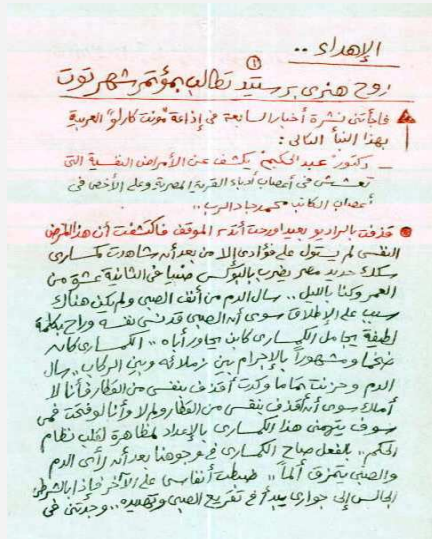 الإهداء ..
(١)
روح هنرى برستيد تطالب بمؤتمر شهر توت
فاجأتنى نشرة أخبار السابعة فى إذاعة "مونت كارلو" العربية
بهذا النبأ التالى :
_ دكتور "عبد الحكيم" يكشف عن الأمراض النفسية التى
تعشش فى أعصاب أدباء القرية المصرية وعلى الأخص فى
أعصاب الكاتب محمد جاد الرب ..
قذفت بالراديو بعيدا ورحت أتدبر الموقف فاكتشفت أن هذا المرض
النفسى لم يستول على فؤادى إلا من بعد أن شاهدت كمسارى
سكك حديد مصر يضرب بالبوكس صبيا فى الثانية عشق من
العمر وكنا بالليل .. سال الدم من أنف الصبى ولم يكن هناك
سبب على الإطلاق سوى أن الصبى قد نسى نفسه وراح بكلمة
لطيفة يجامل الكمسارى كان يجاور أباه .. الكمسارى كان
ضخما ومشهورا بالإجرام بين زملائه وبين الركاب .. سال
الدم وحزنت تماما وكدت أقذف بنفسى من القطار فأنا لا
أملك سوى أن أقذف بنفسى من القطار ولم لا وأنا لو فتحت فمى
سوف يتهمنى هذا الكمسارى بالإعداد لمظاهرة لقلب نظام
الحكم .. بالفعل صاح الكمسارى فى وجوهنا بعد أن رأى الدم
والصبى يتمزق ألما .. ضبطت أنفاسى على الآخر فإذا بالشرطى
الجالس إلى جوارى يبدأ فى تقريع الصبى وتهديده .. وجدتنى فى